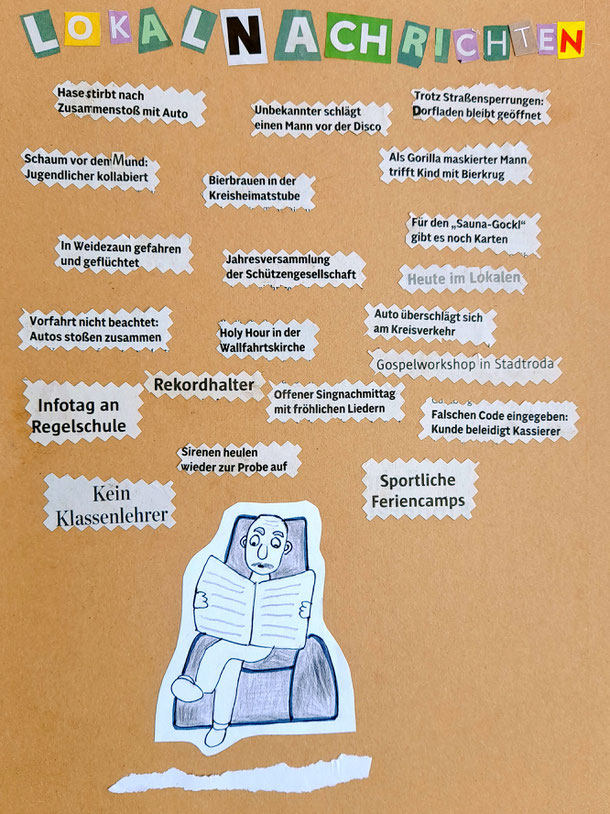 LOKALNACHRICHTEN
Hase stirbt nach
Zusammenstoß mit Auto
Unbekannter schlägt
einen Mann vor der Disco
Trotz Straßensperrungen:
Dorfladen bleibt geöffnet
Schaum vor dem Mund:
Jugendlicher kollabiert
Bierbrauen in der
Kreisheimatstube
Als Gorilla maskierter Mann
trifft Kind mit Bierkrug
In Weidezaun gefahren
und geflüchtet
Jahresversammlung
der Schützengesellschaft
Für den „Sauna-Gockl“
gibt es noch Karten
Heute im Lokalen
Vorfahrt nicht beachtet:
Autos stoßen zusammen
Holy Hour in der
Wallfahrtskirche
Auto überschlägt sich
am Kreisverkehr
Gospelworkshop in Stadtroda
Infotag an
Regelschule
Rekordhalter
Offener Singnachmittag
mit fröhlichen Liedern
Falschen Code eingegeben:
Kunde beleidigt Kassierer
Sirenen heulen
wieder zur Probe auf
Kein
Klassenlehrer
Sportliche
Feriencamps